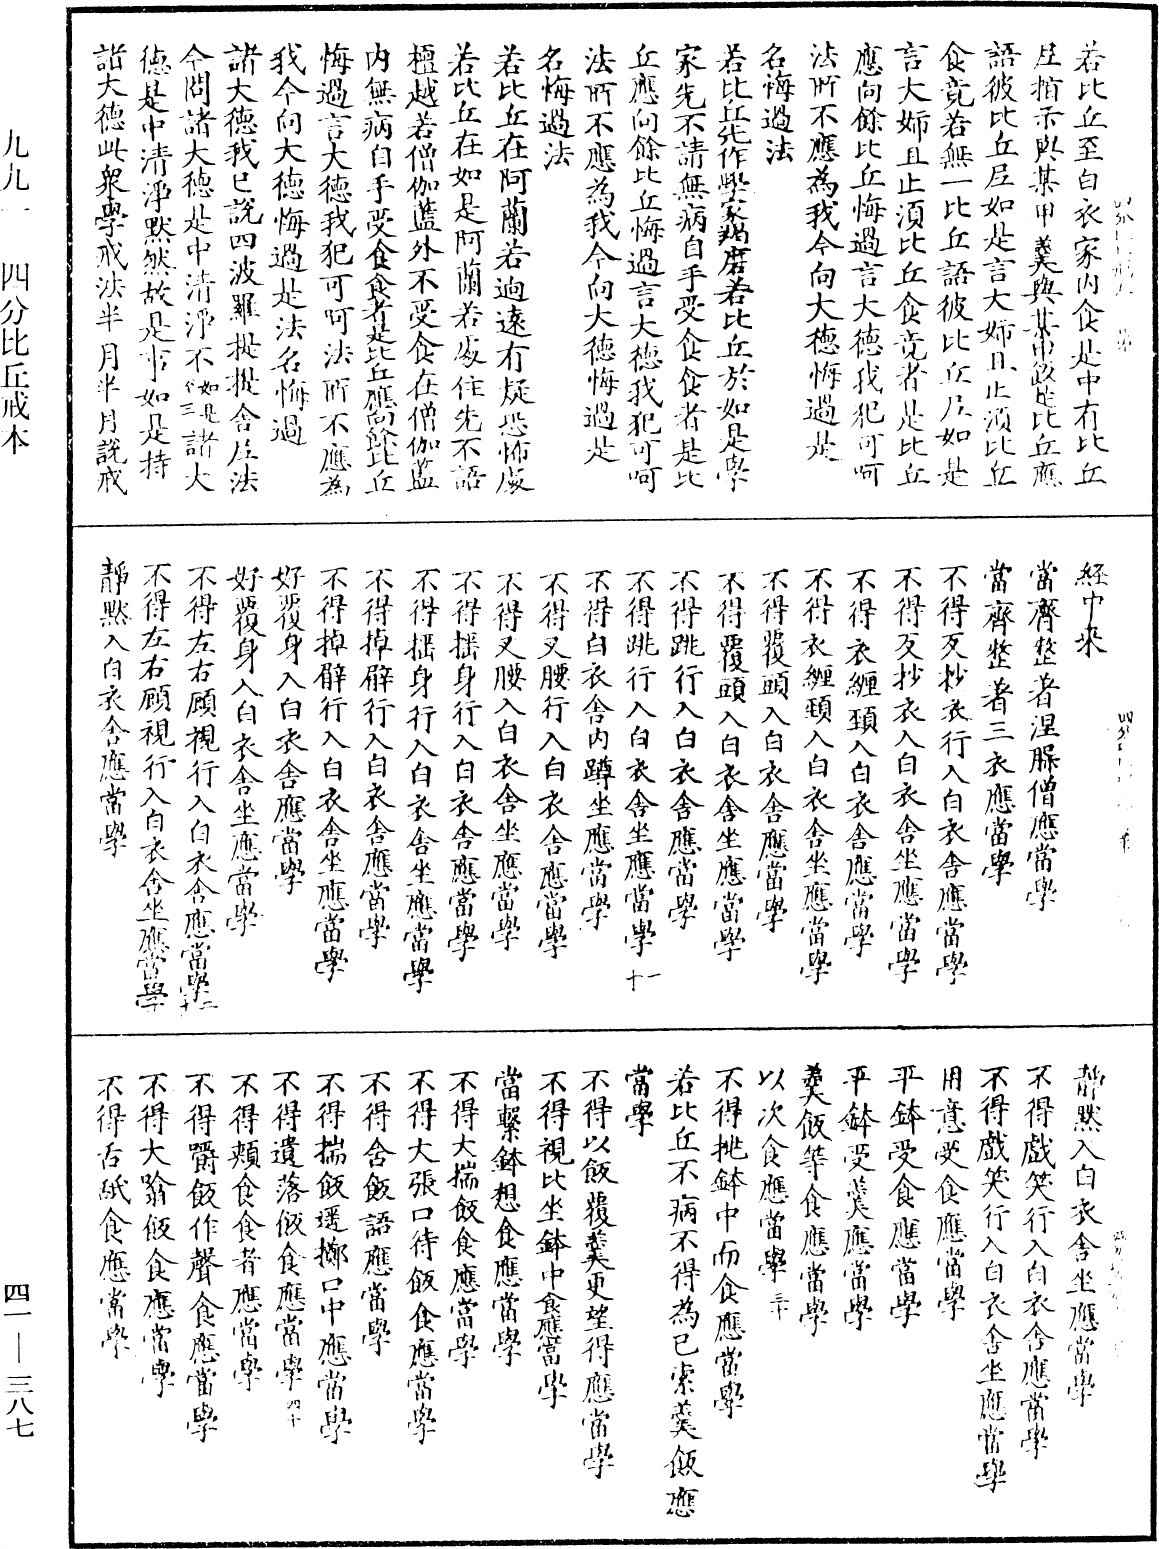 若比丘至白衣家内食是中有比丘
尼指示與某甲羹與某甲飯是比丘應
語彼比丘尼如是言大姉且止須比丘
食竟若無一比丘語彼比丘尼如是
言大姉且止須比丘食竟者是比丘
應向餘比丘悔過言大德我犯可呵
法所不應為我今向大德悔過是
名悔過法
若比丘先作學家羯磨若比丘於如是學
家先不請無病自手受食食者是比
丘應向餘比丘悔過言大德我犯可呵
法所不應為我今向大德悔過是
名悔過法
若比丘在阿蘭若逈遠有疑恐怖處
若比丘在如是阿蘭若處住先不語
檀越若僧伽藍外不受食在僧伽藍
内無病自手受食食者是比丘應向餘比丘
悔過言大德我犯可呵法所不應為
我今向大德悔過是法名悔過
諸大德我已說四波羅提提舍尼法
今問諸大德是中清淨不如是三諸大
德是中清淨默然故是事如是持
諸大德此衆學戒法半月半月說戒
經中來
當齊整著涅槃僧應當學
當齊整著三衣應當學
不得反抄衣行入白衣舍應當學
不得反抄衣入白衣舍坐應當學
不得衣纏頸入白衣舍應當學
不得衣纏頸入白衣舍坐應當學
不得覆頭入白衣舍應當學
不得覆頭入白衣舍坐應當學
不得跳行入白衣舍應當學
不得跳行入白衣舍坐應當學十一
不得白衣舍内蹲坐應當學
不得叉腰行入白衣舍應當學
不得叉腰入白衣舍坐應當學
不得揺身行入白衣舍應當學
不得揺身行入白衣舍坐應當學
不得掉臂行入白衣舍應當學
不得掉臂行入白衣舍坐應當學
好覆身入白衣舍應當學
好覆身入白衣舍坐應當學
不得左右顧視行入白衣舍應當學二十
不得左右顧視行入白衣舍坐應當學
靜默入白衣舍應當學
靜默入白衣舍坐應當學
不得戲笑行入白衣舍應當學
不得戲笑行入白衣舍坐應當學
用意受食應當學
平鉢受食應當學
平鉢受羹應當學
羹飯等食應當學
以次食應當學三十
不得挑鉢中而食應當學
若比丘不病不得為已索羹飯應
當學
不得以飯覆羹更望得應當學
不得視比坐鉢中食應當學
當繫鉢想食應當學
不得大揣飯食應當學
不得大張口待飯食應當學
不得含飯語應當學
不得揣飯遥擲口中應當學
不得遺落飯食應當學四十
不得頰食食者應當學
不得嚼飯作聲食應當學
不得大噏飯食應當學
不得舌舐食應當學
九九一 四分比丘戒本
四一—三八七